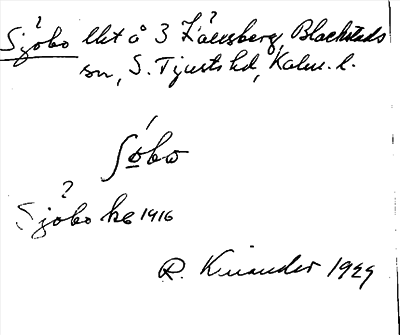 Sjöbo lht å 3 Långsberg, Blackstads
sn, S. Tjusts hd, Kalm. l.
ʃöbo
Sjöbo hs 1916
R. Kinander 1929